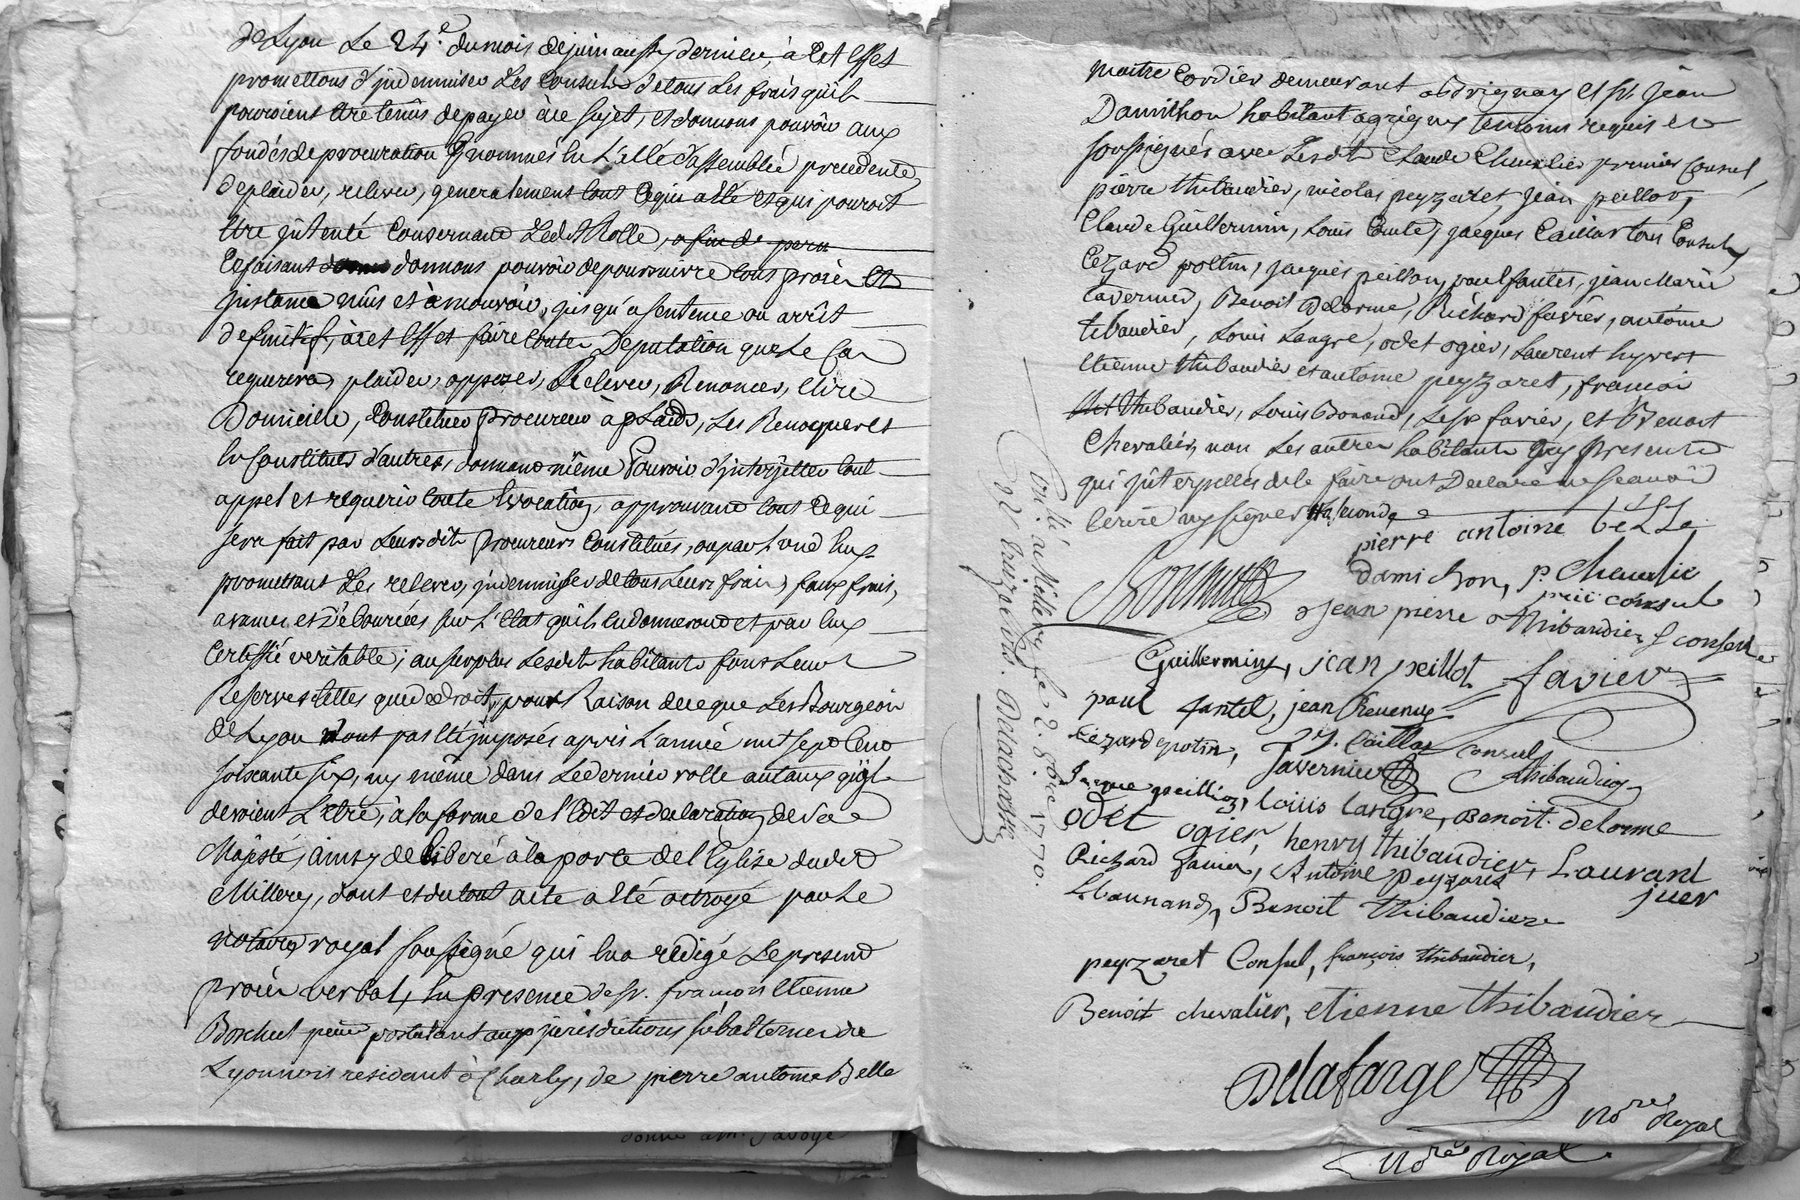 de Lyon Le 24e. du mois de juin aussy dernier, à cet effet
promettons d'jndemniser Les Consuls de tous Les frais qu'ils
pouroient être tenüs de payer à ce sujet, et donnons pouvoir aux
fondés de procuration nommés en L'acte d'assemblée precedente
de plaider, relever, generalement tout ce qui a été et qui pouroit
être jntenté Concernant Ledit Rolle, afin de
Ce faisant donnons pouvoir de poursuivre tous procès et
jnstance müs et à mouvoir, jusqu'a sentence ou arrêt
definitif, à cet effet faire toutes Deputation que Le Cas
requerera, plaider, opposer, Relever, Renoncer, elire
Domicille, Constituer procureur à plaids, Les Revoquer et
en Constituer d'autres, donnant même Pouvoir d'jnterjetter tout
appel et requerir toute Evocation, approuvant tout ce qui
sera fait par Leursdits procureurs Constitués, ou par L'un d'eux
promettant Les relever, jndemniser de tous Leurs frais, faux frais,
avances et Déboursés sur L'Etat qu'ils en donneront et par eux
Certiffié veritable; au surplus Lesdits habitants font Leurs
Reserves telles que de droit, pour Raison de ce que Les Bourgeois
de Lyon n'ont pas été jmposés après L'année mil sept Cent
soixante six, ny même dans Le dernier rolle au taux qu'jls
devoient L'etre, à la forme de l'Edit et declaration de Sa
Majesté, ainsy deliberé à la porte de l'Eglise dudit
Millery, dont et du tout acte a été octroyé par Le
notaire royal soussigné qui en a rédigé Le present
procès verbal, en presence de sr. francois Etienne
Bochut postulant aux jurisdictions subalternes du
Lyonnois residant à Charly, de pierre antoine Belle
maitre Cordier demeurant a Brignay et sr. jean
Damichon habitant a grigny temoins requis et
soussignés avec Lesdits Claude Chevalier premier Consul,
pierre thibaudier, nicolas peyzaret, jean peillot,
Claude Guillermin, Louis Comte, jacques Caillat tous Consuls,
Cezard potin, jacques peillon, paul fantet, jean Marie
tavernier, Benoit Delorme, Richard favier, antoine
tibaudier, Louis Langre, odet ogier, Laurent hyvert
Etienne thibaudier et antoine peyzaret, francois
thibaudier, Louis Bonand, Le sr favier, et Benoit
Chevalier, non Les autres habitants presents
qui jnterpellés de le faire ont Declaré ne Scavoir
Ecrire ny signer
pierre antoine belle
damichon, pr. Chevalie
Bochut jean pierre thibaudier consul
Guillermin, jean peillot favier
paul fantet, jean
Cézard potin, J. Caillat consul
Tavernier thibaudier
Jacque peillion, louis langre, Benoit Delorme
odet ogier, henry thibaudier, Laurant
juer
Richard favier, Antoine peyzaret
L Bonnand, Benoit thibaudier
peyzaret Consul, françois thibaudier,
Benoit chevalier, etienne thibaudier
Delafarge
Nore Royal
Nore Royal
Contllé a Millery le 2. 9bre 1770.
Rt treize sols. Delachassé